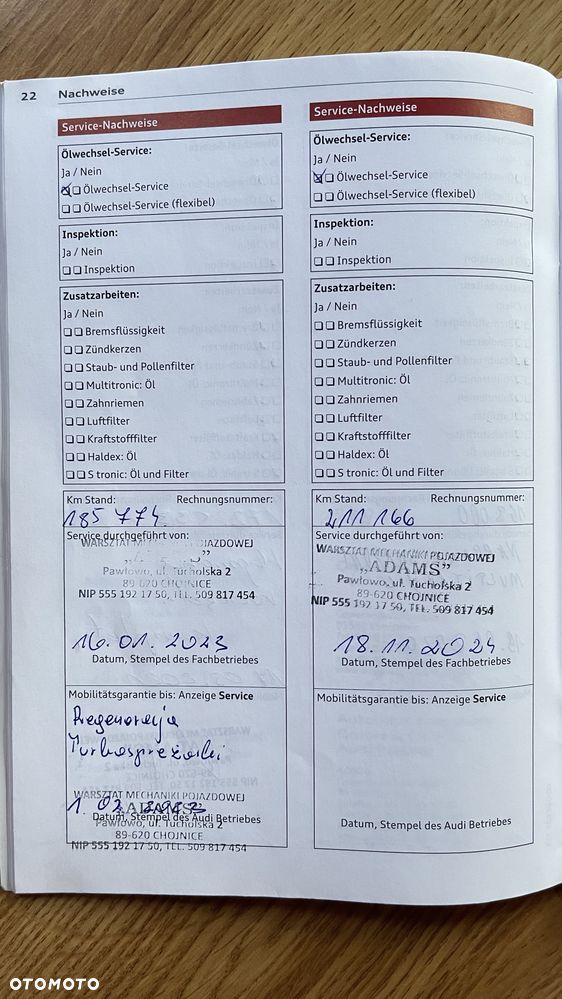 22 Nachweise
Service-Nachweise
Ölwechsel-Service:
Ja / Nein
Ölwechsel-Service
Ölwechsel-Service (flexibel)
Inspektion:
Ja / Nein
Inspektion
Zusatzarbeiten:
Ja / Nein
Bremsflüssigkeit
Zündkerzen
Staub- und Pollenfilter
Multitronic: Öl
Zahnriemen
Luftfilter
Kraftstofffilter
Haldex: Öl
S tronic: Öl und Filter
Km Stand: Rechnungsnummer:
185 774
Service durchgeführt von:
WARSZTAT POJAZDOWEJ
„ADAMS”
Pawłowo, ul. Tucholska 2
89-620 CHOJNICE
NIP 555 192 17 50, TEL. 509 817 454
16.01.2023
Datum, Stempel des Fachbetriebes
Mobilitätsgarantie bis: Anzeige Service
Regeneracja
Turbosprężarki
WARSZTAT MECHANIKI POJAZDOWEJ
1.02.2023
„ADAMS”
Datum, Stempel des Audi Betriebes
Pawłowo, ul. Tucholska 2
89-620 CHOJNICE
NIP 555 192 17 50, TEL. 509 817 454
Service-Nachweise
Ölwechsel-Service:
Ja / Nein
Ölwechsel-Service
Ölwechsel-Service (flexibel)
Inspektion:
Ja / Nein
Inspektion
Zusatzarbeiten:
Ja / Nein
Bremsflüssigkeit
Zündkerzen
Staub- und Pollenfilter
Multitronic: Öl
Zahnriemen
Luftfilter
Kraftstofffilter
Haldex: Öl
S tronic: Öl und Filter
Km Stand: Rechnungsnummer:
211 166
Service durchgeführt von:
WARSZTAT MECHANIKI POJAZDOWEJ
„ADAMS”
Pawłowo, ul. Tucholska 2
89-620 CHOJNICE
NIP 555 192 17 50, TEL. 509 817 454
18.11.2024
Datum, Stempel des Fachbetriebes
Mobilitätsgarantie bis: Anzeige Service
Datum, Stempel des Audi Betriebes
OTOMOTO